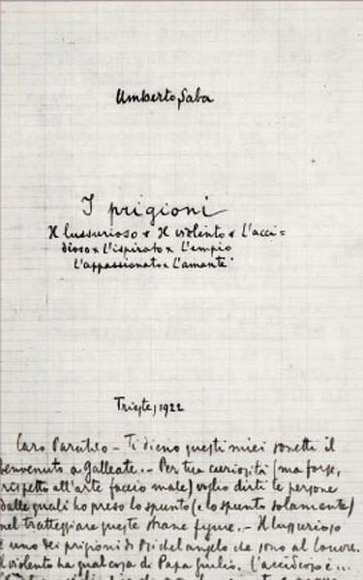 Umberto Saba
I prigioni
Il lussurioso * Il violento * L'acci=
dioso * L'ispirato * L'empio
L'appassionato * L'amante
Trieste, 1922
Caro - Ti dicno questi miei sonetti il
benvenuto a Galleate. - Per tua curiosità (ma forse,
rispetto all'arte faccio male) voglio dirti le persone
dalle quali ho preso lo spunto (lo spunto solamente)
nel tratteggiare queste strane figure. - Il lussurioso
è uno dei prigioni di Michelangelo che sono al Louvre.
Il violento ha qualcosa di Papa Giulio. L'accidioso è...